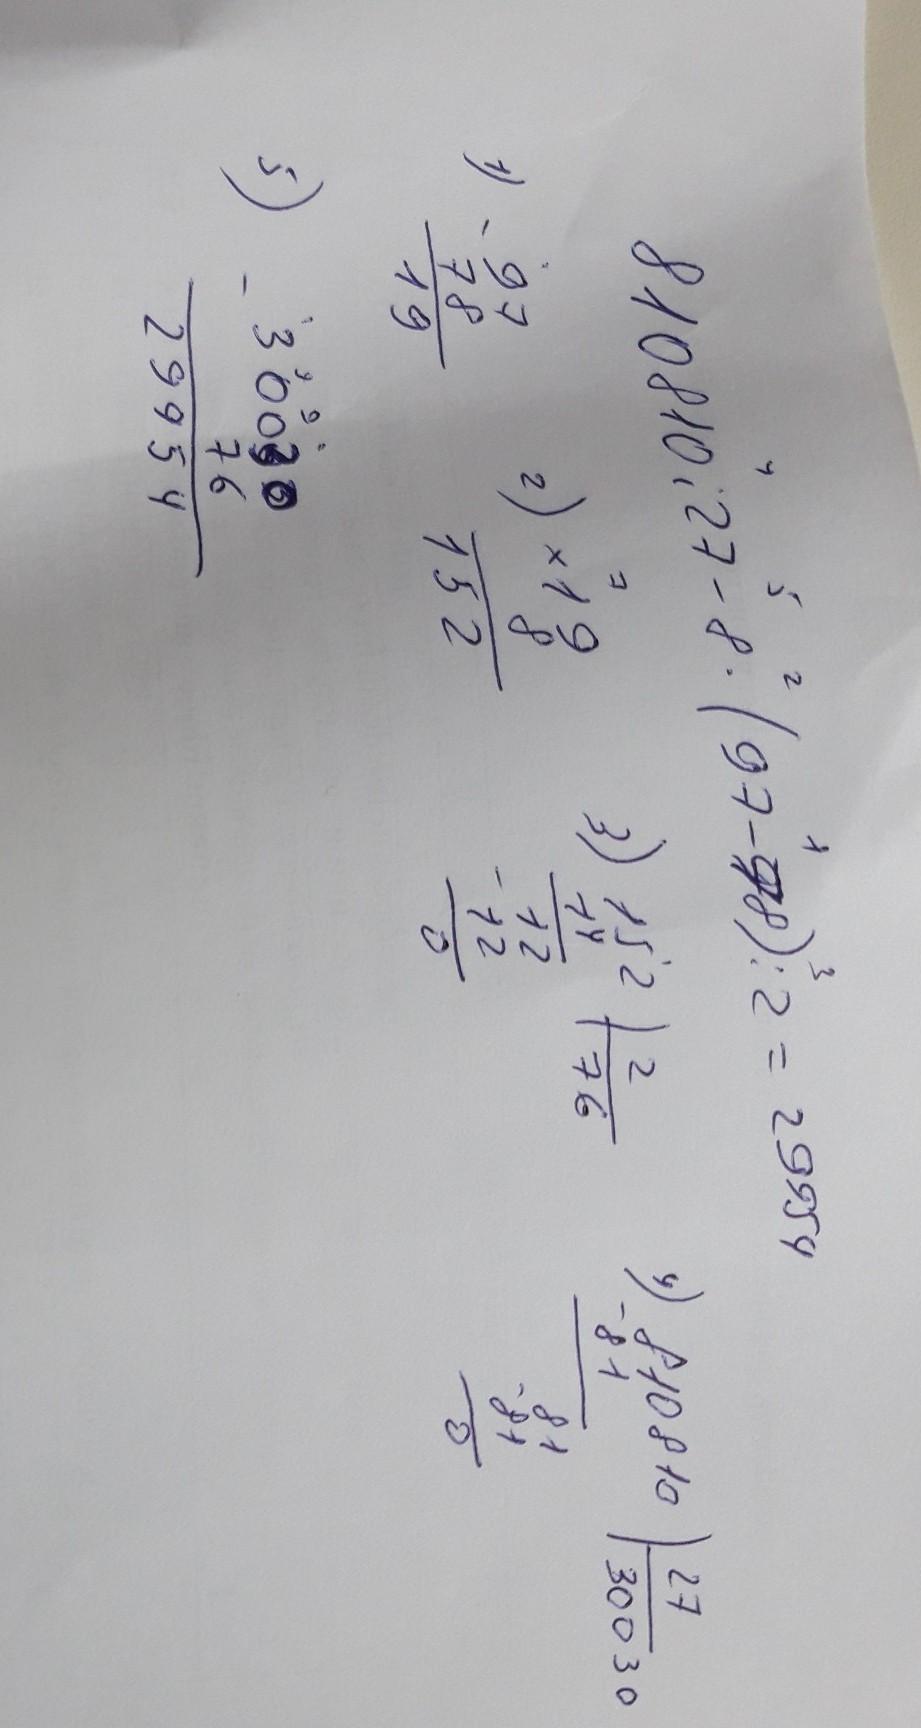 4 5 2 1 3
810810:27-8·(97-78):2=29954
1) -97
78
19
2) ×19
7
8
152
3) 152 | 2
14 76
12
-12
0
4) 810810 | 27
-81 30030
81
-81
0
5) -30030
9 9
76
29954